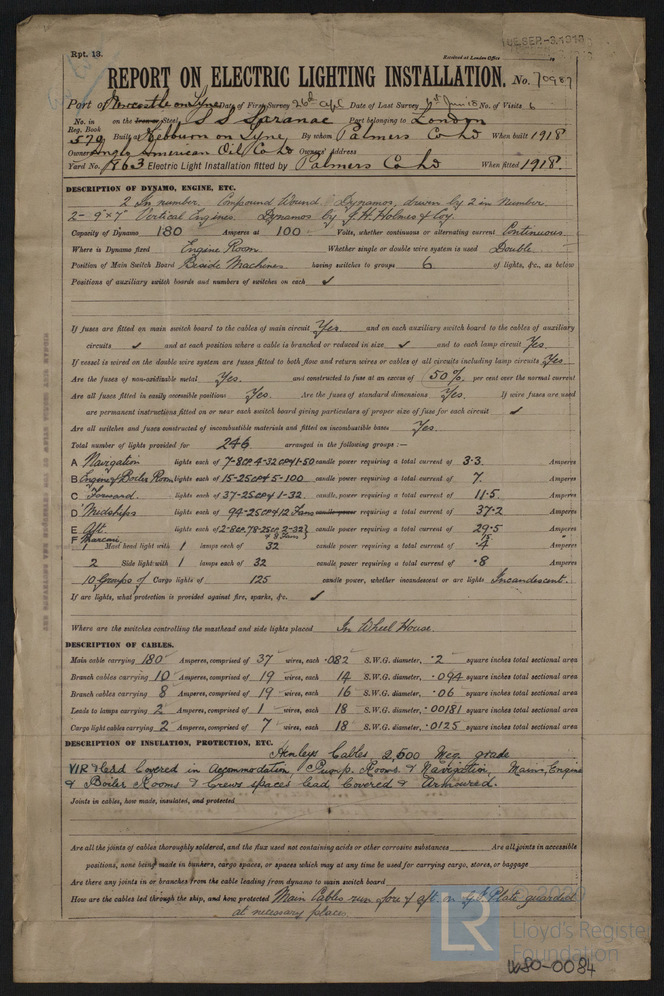 Rpt. 13.
Received at London Office
TUE. SEP. 3. 1918
REPORT ON ELECTRIC LIGHTING INSTALLATION. No. 70987
Port of Newcastle on Tyne Date of First Survey 26th Apl Date of Last Survey Jun 18 No. of Visits 6
No. in Reg. Book 579 on the Iron or Steel S S Saranac Port belonging to London
Built at Hebburn on Tyne By whom Palmers Co Ld When built 1918
Owners Anglo American Oil Co Ld Owners' Address
Yard No. 863 Electric Light Installation fitted by Palmers Co Ld When fitted 1918.
DESCRIPTION OF DYNAMO, ENGINE, ETC.
2 In number. Compound Wound Dynamos, driven by 2 in Number
2 - 9" x 7" Vertical Engines. Dynamos by J. H. Holmes & Coy.
Capacity of Dynamo 180 Amperes at 100 Volts, whether continuous or alternating current Continuous
Where is Dynamo fixed Engine Room. Whether single or double wire system is used Double
Position of Main Switch Board Beside Machines having switches to groups 6 of lights, &c., as below
Positions of auxiliary switch boards and numbers of switches on each ✓
If fuses are fitted on main switch board to the cables of main circuit Yes and on each auxiliary switch board to the cables of auxiliary
circuits ✓ and at each position where a cable is branched or reduced in size ✓ and to each lamp circuit Yes.
If vessel is wired on the double wire system are fuses fitted to both flow and return wires or cables of all circuits including lamp circuits Yes
Are the fuses of non-oxidizable metal Yes. and constructed to fuse at an excess of 50% per cent over the normal current
Are all fuses fitted in easily accessible positions Yes. Are the fuses of standard dimensions Yes. If wire fuses are used
are permanent instructions fitted on or near each switch board giving particulars of proper size of fuse for each circuit ✓
Are all switches and fuses constructed of incombustible materials and fitted on incombustible bases Yes.
Total number of lights provided for 246 arranged in the following groups :—
A Navigation lights each of 7-8CP. 4-32CP & 1-50 candle power requiring a total current of 3.3 Amperes
B Engine & Boiler Room lights each of 15-25CP & 5-100 candle power requiring a total current of 7. Amperes
C Forward. lights each of 37-25CP & 1-32. candle power requiring a total current of 11.5 Amperes
D Midships lights each of 94-25CP & 12 Fans candle power requiring a total current of 37.2 Amperes
E Aft lights each of 2-8CP. 78-25CP 2-32 & 8 Fans candle power requiring a total current of 29.5 Amperes
F Marconi. 15 "
1 Mast head light with 1 lamps each of 32 candle power requiring a total current of .4 Amperes
2 Side light with 1 lamps each of 32 candle power requiring a total current of .8 Amperes
10 Groups of Cargo lights of 125 candle power, whether incandescent or arc lights Incandescent.
If arc lights, what protection is provided against fire, sparks, &c. ✓
Where are the switches controlling the masthead and side lights placed In Wheel House.
DESCRIPTION OF CABLES.
Main cable carrying 180 Amperes, comprised of 37 wires, each .082 S.W.G. diameter, .2 square inches total sectional area
Branch cables carrying 10 Amperes, comprised of 19 wires, each 14 S.W.G. diameter, .094 square inches total sectional area
Branch cables carrying 8 Amperes, comprised of 19 wires, each 16 S.W.G. diameter, .06 square inches total sectional area
Leads to lamps carrying 2 Amperes, comprised of 1 wires, each 18 S.W.G. diameter, .00181 square inches total sectional area
Cargo light cables carrying 2 Amperes, comprised of 7 wires, each 18 S.W.G. diameter, .0125 square inches total sectional area
DESCRIPTION OF INSULATION, PROTECTION, ETC.
Henleys Cables 2,500 Meg. grade
VIR & lead Covered in accommodation, Pump Rooms & Navigation. Mains, Engine
& Boiler Rooms & Crews spaces lead Covered & Armoured.
Joints in cables, how made, insulated, and protected
Are all the joints of cables thoroughly soldered, and the flux used not containing acids or other corrosive substances Are all joints in accessible
positions, none being made in bunkers, cargo spaces, or spaces which may at any time be used for carrying cargo, stores, or baggage
Are there any joints in or branches from the cable leading from dynamo to main switch board
How are the cables led through the ship, and how protected Main Cables run fore & aft on Plate guarded
at necessary places.
LR
2020
Lloyd's Register
Foundation
W80-0084